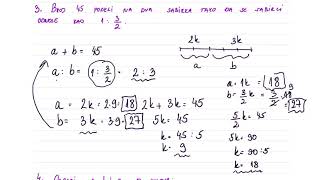 3. Broj 45 podeli na dva sabirka tako da se sabirci
odnose kao 1 : 3/2
a + b = 45
a : b = 1 : 3/2 = 2 : 3
2k 3k
a b
a = 2k = 2·9 = 18
b = 3k = 3·9 = 27
2k + 3k = 45
5k = 45
k = 45 : 5
k = 9
a = 1k = 18
b = 3/2 k = 3/2 · 18 9 = 27
5/2 k = 45
5k = 90
k = 90 : 5
k = 18